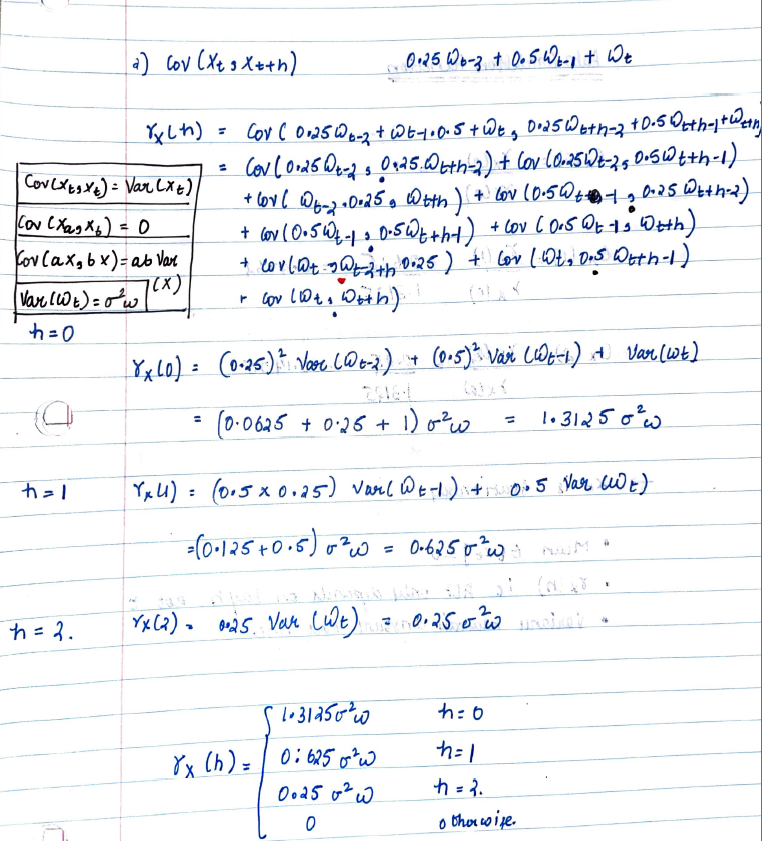 a) Cov (Xt, Xt+h)    0.25 Wt-2 + 0.5 Wt-1 + Wt
γx(h) = Cov ( 0.25 Wt-2 + Wt-1 · 0.5 + Wt , 0.25 Wt+h-2 + 0.5 Wt+h-1 + Wt+h)
= Cov ( 0.25 Wt-2 , 0.25. Wt+h-2) + Cov (0.25 Wt-2, 0.5 Wt+h-1)
+ Cov ( Wt-2 . 0.25 , Wt+h ) + Cov (0.5 Wt-1 , 0.25 Wt+h-2)
+ Cov (0.5 Wt-1 , 0.5 Wt+h-1) + Cov ( 0.5 Wt-1, Wt+h)
+ Cov (Wt , Wt-2+h 0.25 ) + Cov ( Wt, 0.5 Wt+h-1 )
+ Cov (Wt , Wt+h)
Cov(Xt, Xt) = Var (Xt)
Cov (Xa, Xb) = 0
Cov (ax, bx) = ab Var (X)
Var (Wt) = σ²w
h=0
γx(0) = (0.25)² Var (Wt-2) + (0.5)² Var (Wt-1) + Var (Wt)
= (0.0625 + 0.25 + 1) σ²w = 1.3125 σ²w
h=1 γx(1) = (0.5 x 0.25) Var( Wt-1) + 0.5 Var (Wt)
=(0.125 + 0.5) σ²w = 0.625 σ²w
h = 2. γx(2) = 0.25. Var (Wt) = 0.25 σ²w
1.3125 σ²w h=0
γx (h) = 0.625 σ²w h=1
0.25 σ²w h = 2.
0 otherwise.